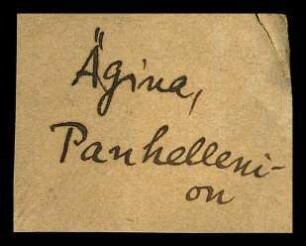 Ägina,
Panhelleni-
on